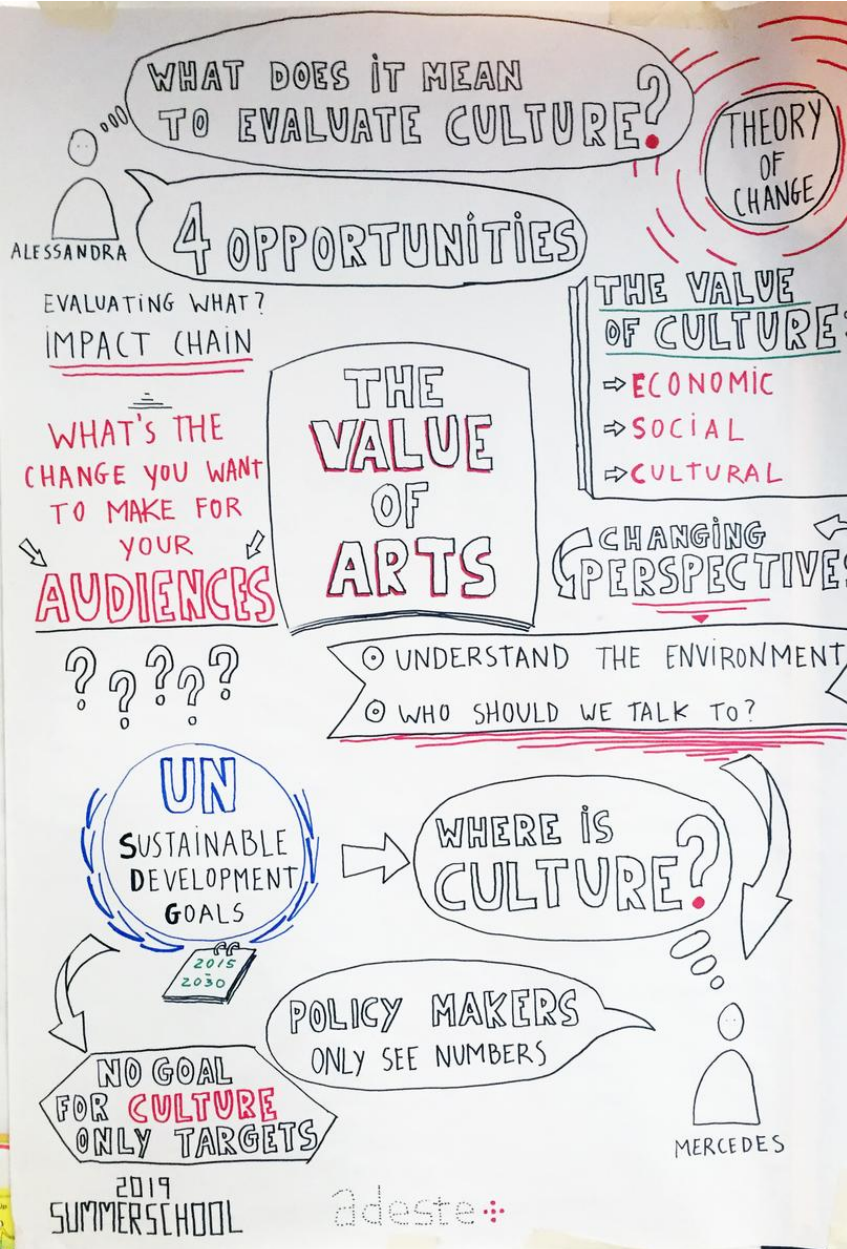 WHAT DOES iT MEAN
TO EVALUATE CULTURE?
ALESSANDRA
4 OPPORTUNiTiES
THEORY
OF
CHANGE
EVALUATiNG WHAT?
iMPACT CHAiN
WHAT'S THE
CHANGE YOU WANT
TO MAKE FOR
YOUR
AUDIENCES
? ? ? ? ?
THE
VALUE
OF
ARTS
THE VALUE
OF CULTURE:
⇨ ECONOMiC
⇨ SOCiAL
⇨ CULTURAL
CHANGiNG
PERSPECTiVES
UNDERSTAND THE ENVIRONMENT
WHO SHOULD WE TALK TO?
UN
SUSTAiNABLE
DEVELOPMENT
GOALS
2015
-
2030
WHERE iS
CULTURE?
POLiCY MAKERS
ONLY SEE NUMBERS
MERCEDES
NO GOAL
FOR CULTURE
ONLY TARGETS
2019
SUMMERSCHOOL
adeste+